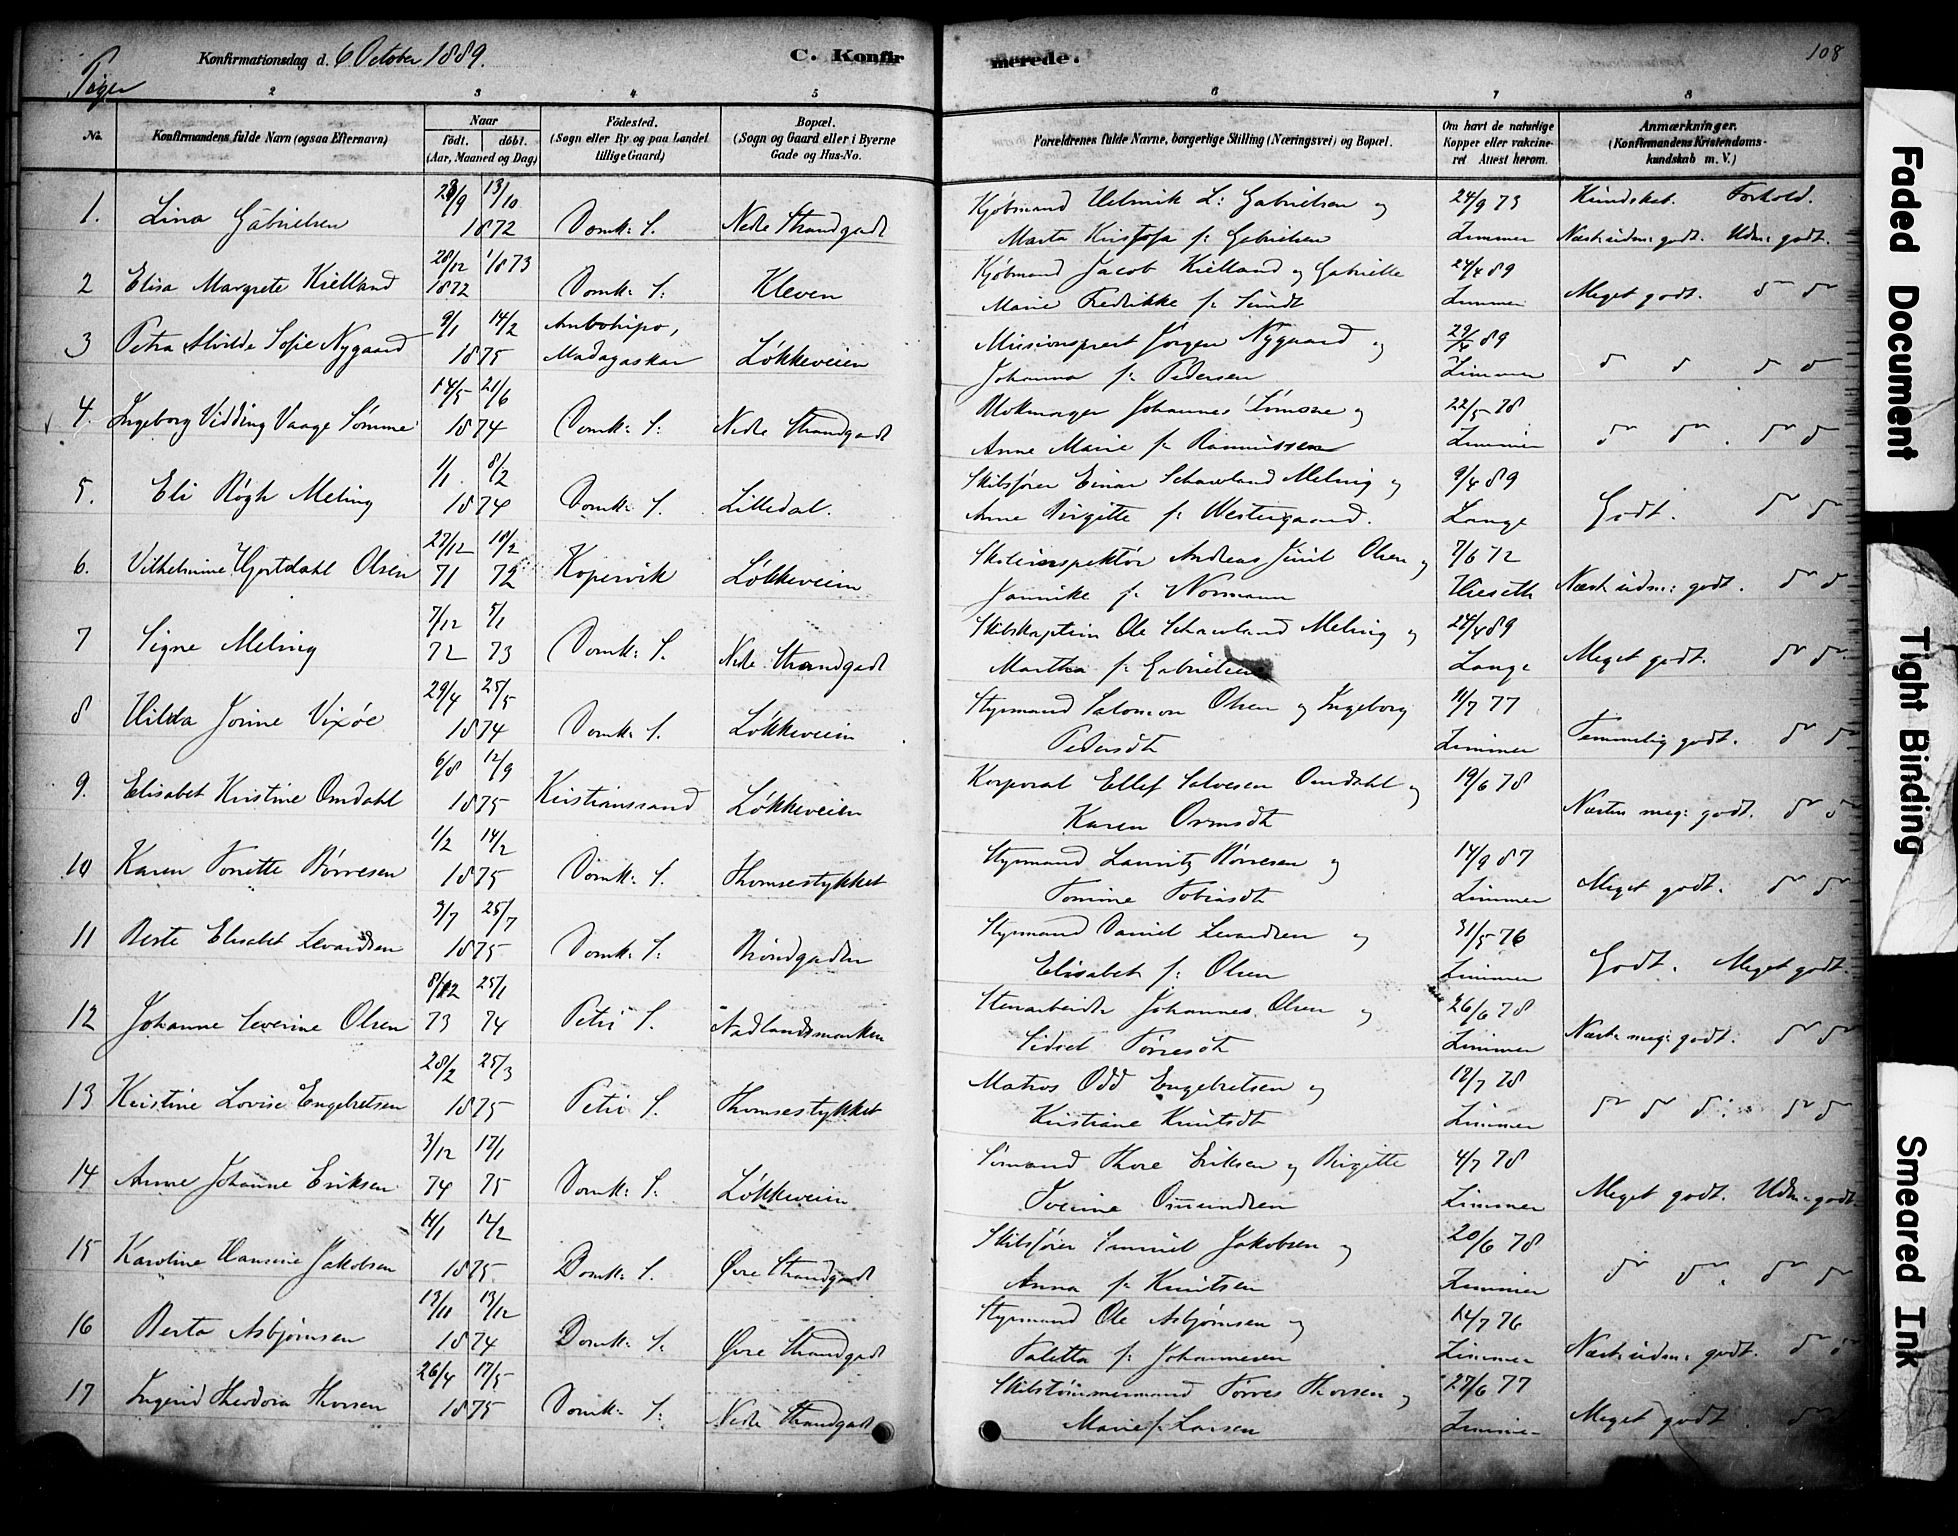 Konfirmationsdag d. 6 October 1889.
C. Konfirmerede.
108
Piger
2 3 4 5 6 7 8
No.
Konfirmandens fulde Navn (ogsaa Efternavn)
Naar
født. døbt.
(Aar, Maaned og Dag)
Fødested.
(Sogn eller By og paa Landet
tillige Gaard)
Bopæl.
(Sogn og Gaard eller i Byerne
Gade og Hus-No.
Forældrenes fulde Navne, borgerlige Stilling (Næringsvei) og Bopæl.
Om havt de naturlige
Kopper eller vakcine-
ret Attest herom.
Anmærkninger.
(Konfirmandens Kristendoms-
kundskab m. V.)
1. Lina Gabrielsen 28/9 13/10 1872 Domk: S. Nedre Strandgade
Kjøbmand Helmik L: Gabrielsen og 24/9 73 Kundskab. Forhold.
Marta Kristofa f: Gabrielsen Zimmer Næst: udm: godt. Udm: godt.
2 Elisa Margrete Kielland 28/12 1872 1/1873 Domk: S: Kleven
Kjøbmand Jacob Kielland og Gabrielle 24/4 89
Marie Fredrikke f: Sundt Zimmer Meget godt. do do
3 Petra Alvilde Sofie Nygaard 9/1 14/2 1875 Ambohipo, Madagaskar Løkkeveien
Missionsprest Jørgen Nygaard og 29/6 89
Johanna f: Pedersen Zimmer do do do do
4. Ingeborg Vidding Vaage Sømme 14/5 21/6 1874 Domk: S: Nedre Strandgade
Blokmager Johannes Sømme og 22/5 78
Anne Marie f: Rasmussen Zimmer do do. do do
5. Eli Bøgh Meling 1/1. 8/2 1874 Domk: S. Lilledal.
Skibsfører Einar Schawland Meling og 9/4 89
Anne Birgitte f: Westergaard. Lange Godt. do do
6. Vilhelmine Hjortdahl Olsen 27/12 71 10/2 72 Kopervik Løkkeveien
Skoleinspektør Andreas Juul Olsen og 7/6 72
Jannike f: Normann Hieseth Næst: udm: godt. do do
7 Signe Meling 7/12 72 5/1 73 Domk: S. Nedre Strandgade
Skibskaptein Ole Schawland Meling og 24/4 89
Martha f: Gabrielsen Lange Meget godt. do do
8 Hilda Jorine Vixøe 29/4 25/5 1874 Domk: S. Løkkeveien
Styrmand Salomon Olsen og Ingeborg 11/7 77
Pedersdt Zimmer Temmelig godt. do do
9. Elisabet Kristine Omdahl 6/8 12/9 1875 Kristianssand Løkkeveien
Korporal Ellef Salvesen Omdahl og 19/6 78
Karen Ormsdt Næsten meg: godt. do do
10 Karen Tonette Børresen 1/2 14/2 1875 Domk: S. Thomsestykket
Styrmand Lauritz Børresen og 14/9 87
Tomine Tobiasdt Zimmer Meget godt. do do
11 Berte Elisabet Levardsen 3/7 25/7 1875 Domk: S: Brøndgaden
Styrmand Daniel Levardsen og 31/5 76
Elisabet f: Olsen Zimmer Godt. Meget godt.
12 Johanne Severine Olsen 8/12 73 25/1 74 Petri S. Nadlandsmarken
Stenarbeider Johannes Olsen og 26/6 78
Sidsel Tørresdt Zimmer Næst: meg: godt. do do
13 Kristine Lovise Engebretsen 28/2 25/3 1875 Petri S. Thomsestykket
Matros Odd Engebretsen og 12/7 78
Kristiane Knutsdt Zimmer do do do: do do
14 Anne Johanne Eriksen 3/12 74 17/1 75 Domk: S: Løkkeveien
Sømand Thore Eriksen og Birgitte 4/7 78
Tverine Omundsen Zimmer Meget godt. Udm: godt.
15 Karoline Hansine Jakobsen 14/1 14/2 1875. Domk: S. Øvre Strandgade
Skibsfører Samuel Jakobsen og 20/6 78
Anna f: Knutsen Zimmer do do. do do
16 Berta Asbjørnsen 13/11 13/12 1874 Domk: S: Øvre Strandgade
Styrmand Ole Asbjørnsen og 14/7 76
Taletta f: Johannesen Zimmer Næst: udm: godt. do do
17 Ingerid Theodora Thorsen 26/4 17/5 1875 Domk: S: Nedre Strandgade
Skibstømmermand Tørres Thorsen og 27/6 77
Marie f: Larsen Zimmer Meget godt. do
Faded Document
Tight Binding
Smeared Ink